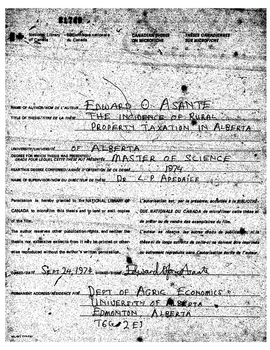 National Library of Canada
Bibliothèque nationale du Canada
CANADIAN THESES ON MICROFICHE
THÈSES CANADIENNES SUR MICROFICHE
NAME OF AUTHOR/NOM DE L'AUTEUR EDWARD O. ASANTE
TITLE OF THESIS/TITRE DE LA THÈSE THE INCIDENCE OF RURAL
PROPERTY TAXATION IN ALBERTA
UNIVERSITY/UNIVERSITÉ OF ALBERTA
DEGREE FOR WHICH THESIS WAS PRESENTED/
GRADE POUR LEQUEL CETTE THÈSE FUT PRÉSENTÉE MASTER OF SCIENCE
YEAR THIS DEGREE CONFERRED/ANNÉE D'OBTENTION DE CE DEGRÉ 1974
NAME OF SUPERVISOR/NOM DU DIRECTEUR DE THÈSE DR L P APEDAILE
Permission is hereby granted to the NATIONAL LIBRARY OF
CANADA to microfilm this thesis and to lend or sell copies
of the film.
The author reserves other publication rights, and neither the
thesis nor extensive extracts from it may be printed or other-
wise reproduced without the author's written permission.
L'autorisation est, par la présente, accordée à la BIBLIOTHÈ-
QUE NATIONALE DU CANADA de microfilmer cette thèse et
de prêter ou de vendre des exemplaires du film.
L'auteur se réserve les autres droits de publication; ni la
thèse ni de longs extraits de celle-ci ne doivent être imprimés
ou autrement reproduits sans l'autorisation écrite de l'auteur.
DATED/DATÉ SEPT 24, 1974
PERMANENT ADDRESS/RÉSIDENCE FIXE DEPT OF AGRIC ECONOMICS
UNIVERSITY OF ALBERTA
EDMONTON, ALBERTA
T6G 2E1